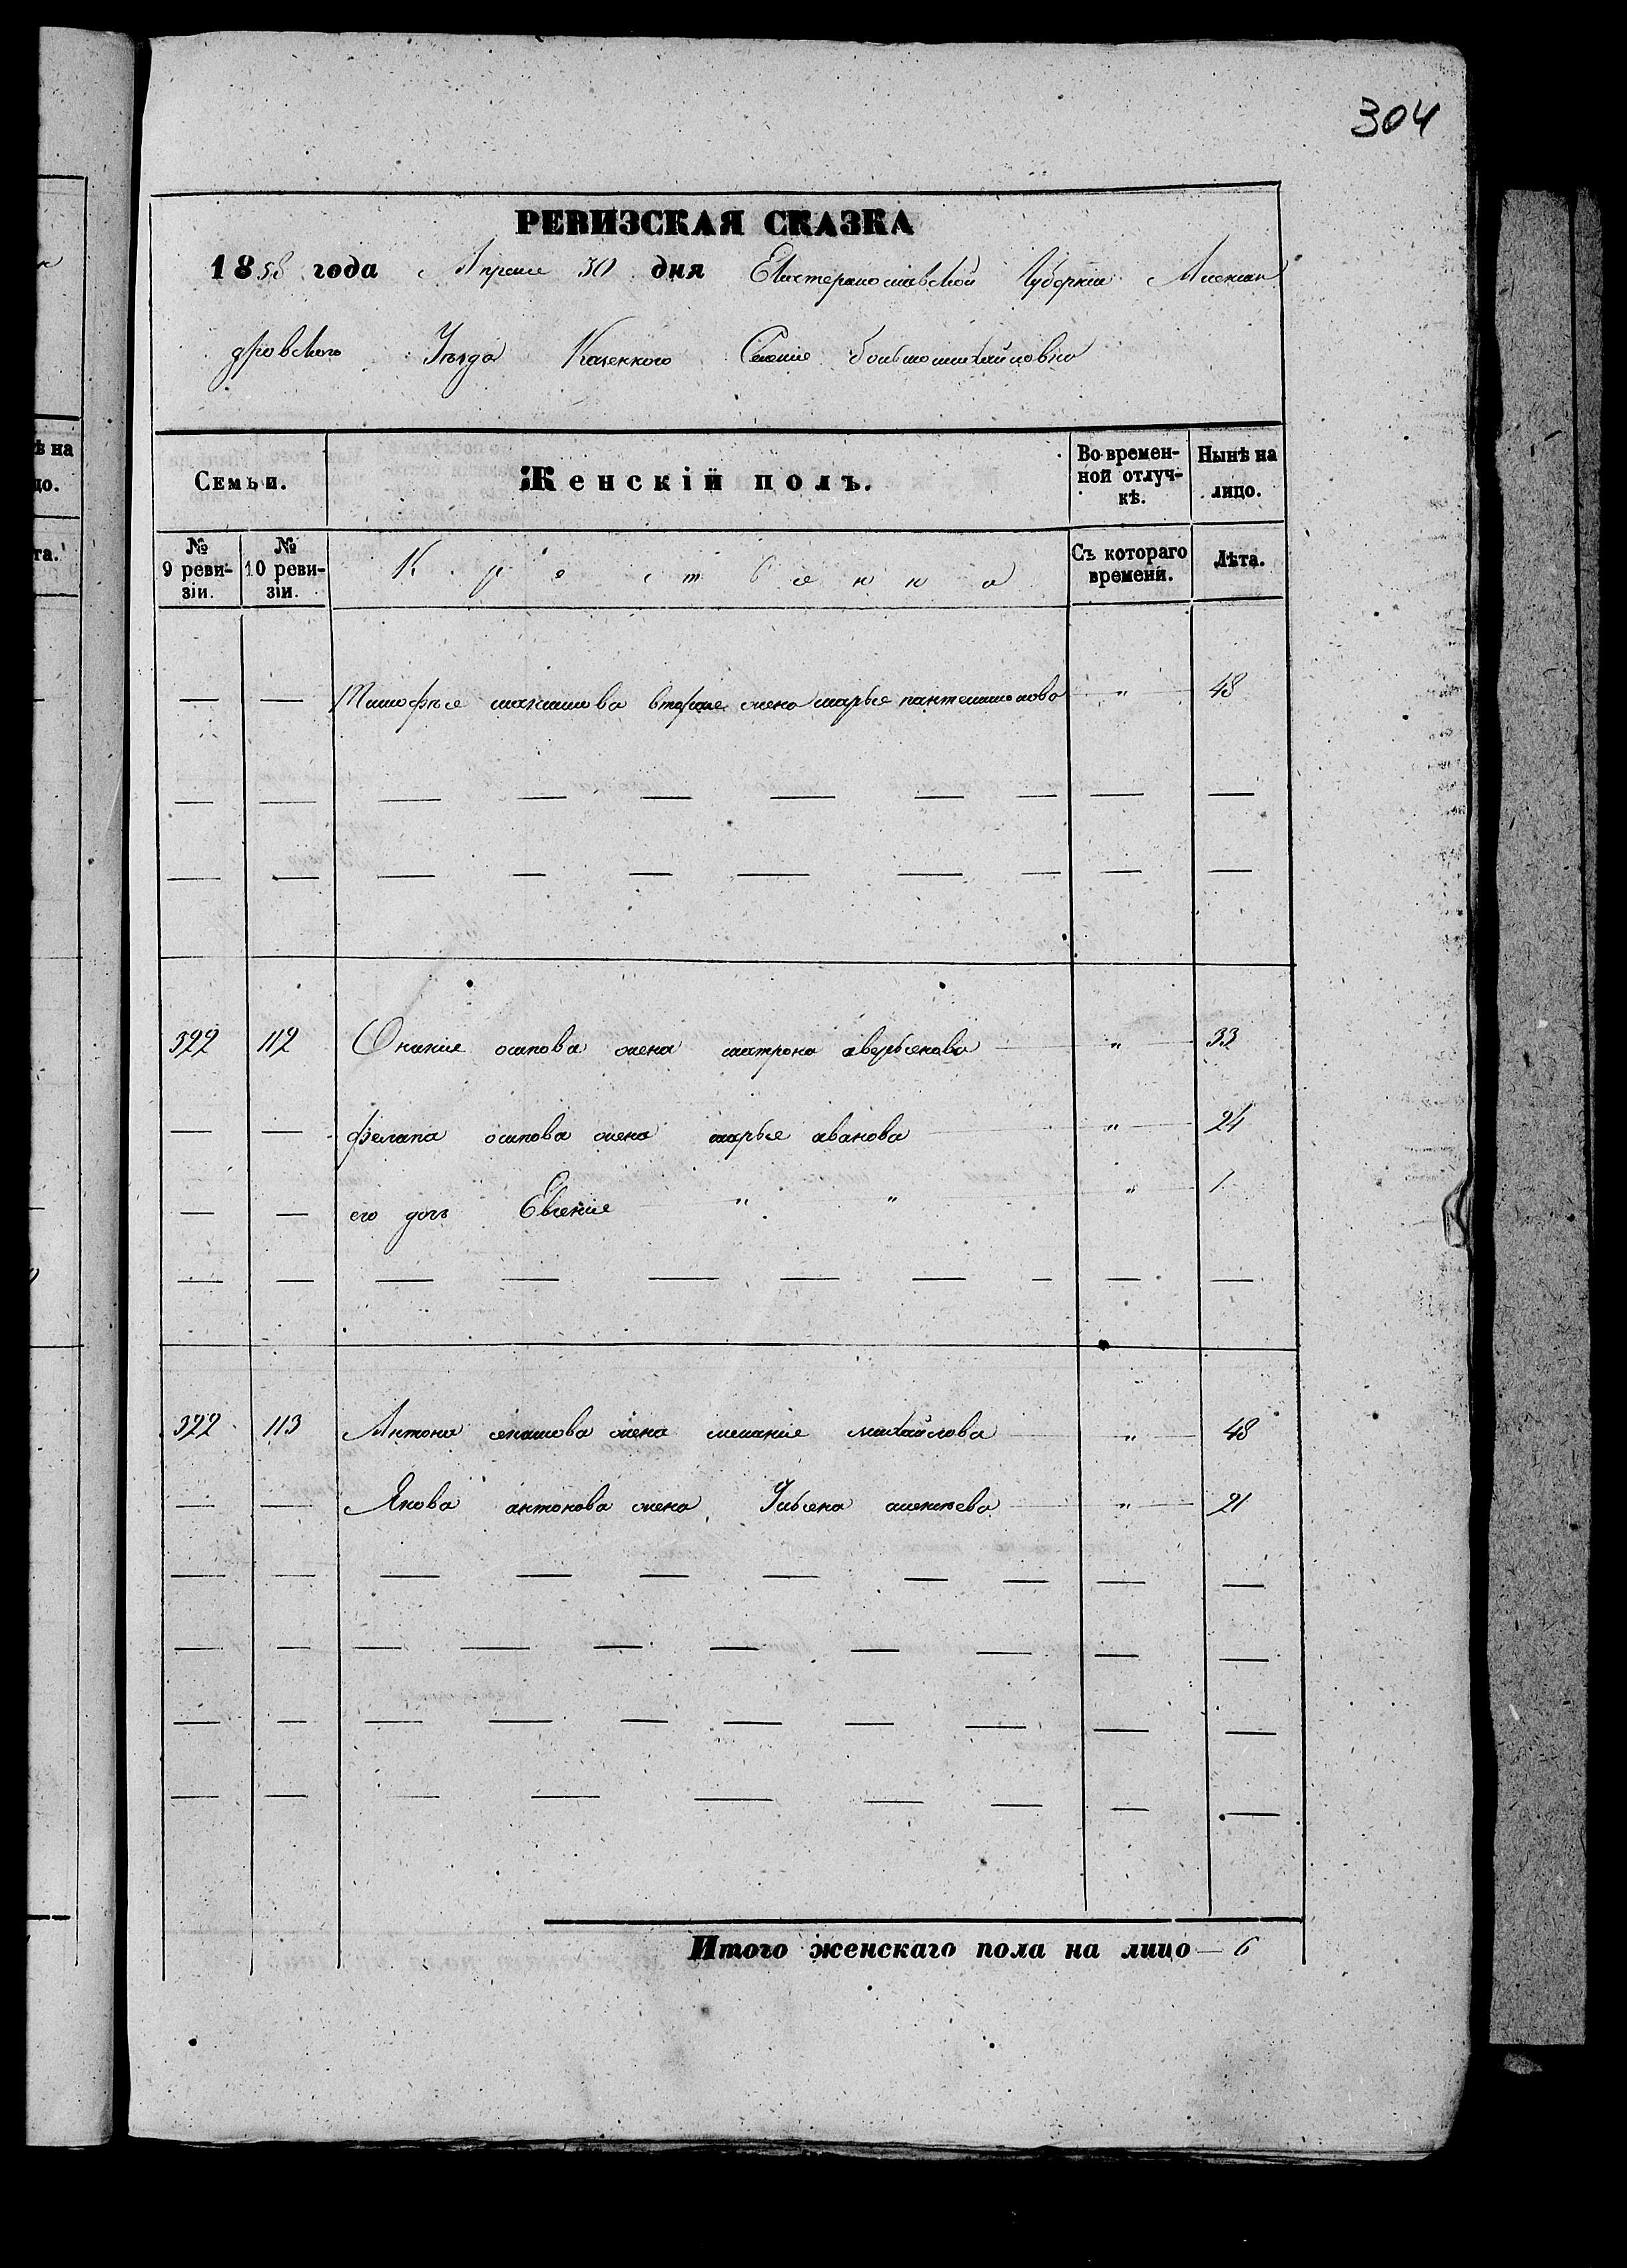 304
РЕВИЗСКАЯ СКАЗКА
1858 года Апреля 30 дня Екатеринославской Губернии Алексан
дровского Уезда Казенного Селение большомихайловки
Семьи. Женскій полъ. Во временной отлучкѣ. Нынѣ на лицо.
№ 9 ревизіи. № 10 ревизіи. К р е с т ь я н к а Съ котораго времени. Лѣта.
— — Тимофея максимова вторая жена марья пантелимонова " 48
— — — — — — — — — —
— — — — — — — — — —
322 112 осипова жена матрона аверьенова " 33
— — филипа осипова жена марья иванова " 24
— — его дочь Евгения " " " 1
— — — — — — — — — —
322 113 Антона жена мелания михайлова " 48
— — Якова антонова жена Ульена алексѣева " 21
— — — — — — — — — —
— — — — — — — — — —
— — — — — — — — — —
— — — — — — — — —
Итого женскаго пола на лицо — 6